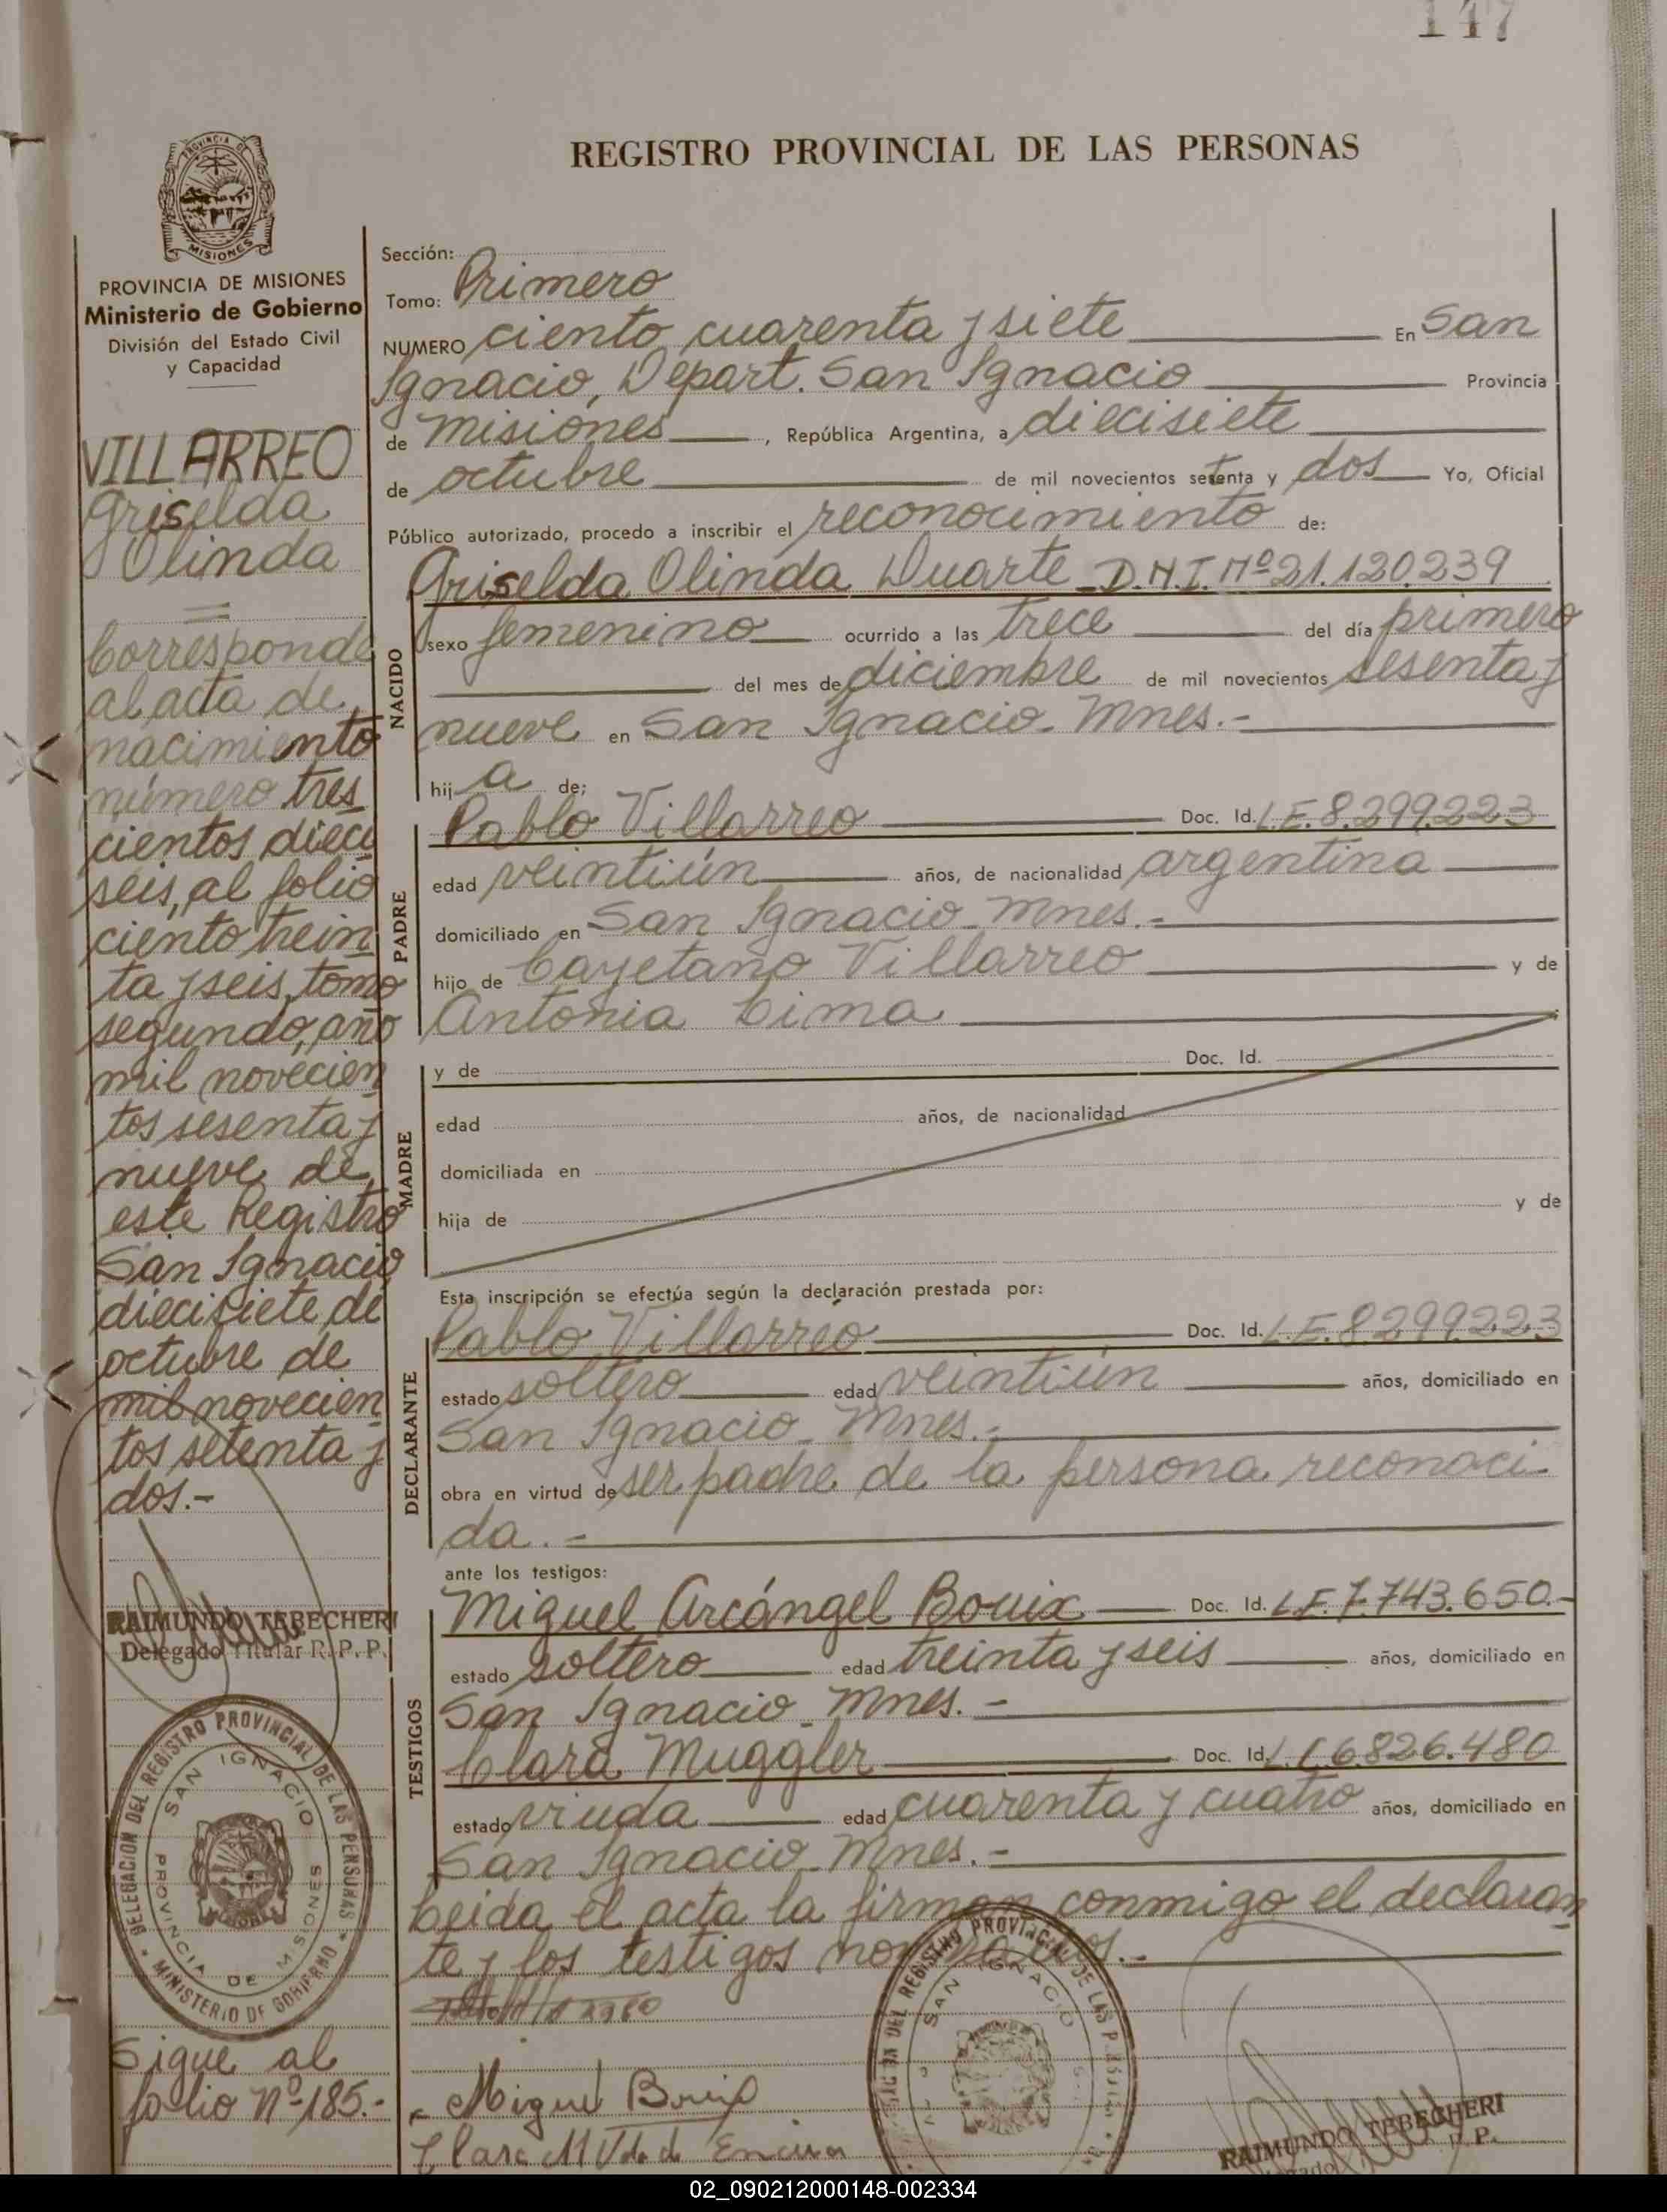 147
REGISTRO PROVINCIAL DE LAS PERSONAS
PROVINCIA DE MISIONES
PROVINCIA DE MISIONES
Ministerio de Gobierno
División del Estado Civil
y Capacidad
VILLARREO
Griselda
Olinda
Corresponde
al acta de
nacimiento
número tres
cientos dieci
seis, al folio
ciento trein
ta y seis, tomo
segundo, año
mil novecien
tos sesenta y
nueve de
este Registro
San Ignacio
diecisiete de
octubre de
mil novecien
tos setenta y
dos.-
RAIMUNDO TEBECHERI
Delegado Titular R.P.P.
DELEGACION DEL REGISTRO PROVINCIAL DE LAS PERSONAS
SAN IGNACIO
PROVINCIA DE MISIONES
MINISTERIO DE GOBIERNO
Sigue al
folio Nº 185.-
Sección:
Tomo: Primero
NUMERO ciento cuarenta y siete En San
Ignacio, Depart. San Ignacio Provincia
de Misiones, República Argentina, a diecisiete
de octubre de mil novecientos setenta y dos Yo, Oficial
Público autorizado, procedo a inscribir el reconocimiento de:
NACIDO
Griselda Olinda Duarte D.N.I. Nº 21.120.239
sexo femenino ocurrido a las trece del día primero
del mes de diciembre de mil novecientos sesenta y
nueve en San Ignacio - Mnes.-
hij a de:
PADRE
Pablo Villarreo Doc. Id. L.E. 8.299.223
edad veintiún años, de nacionalidad argentina
domiciliado en San Ignacio - Mnes.-
hijo de Cayetano Villarreo y de
Antonia Cima
MADRE
y de Doc. Id.
edad años, de nacionalidad
domiciliada en
hija de y de
Esta inscripción se efectúa según la declaración prestada por:
DECLARANTE
Pablo Villarreo Doc. Id. L.E. 8.299.223
estado soltero edad veintiún años, domiciliado en
San Ignacio - Mnes.-
obra en virtud de ser padre de la persona reconoci-
da.-
ante los testigos:
TESTIGOS
Miguel Arcángel Bouix Doc. Id. L.E. 7.743.650.-
estado soltero edad treinta y seis años, domiciliado en
San Ignacio - Mnes.-
Clara Muggler Doc. Id. L.C. 6.826.480
estado viuda edad cuarenta y cuatro años, domiciliado en
San Ignacio - Mnes.-
Leida el acta la firman conmigo el declaran
te y los testigos nombrados.-
Miguel Bouix
Clara M Vda de
DEL REGISTRO PROVINCIAL DE LAS
SAN IGNACIO
RAIMUNDO TEBECHERI
02_090212000148-002334